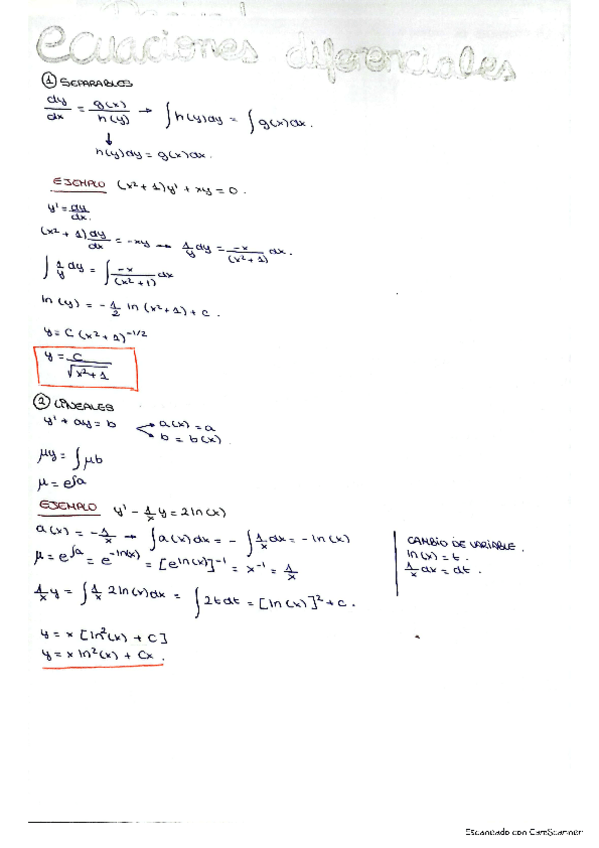 ecuaciones diferenciales
① SEPARABLES
dy/dx = g(x)/h(y) → ∫h(y)dy = ∫g(x)dx.
↓
h(y)dy = g(x)dx.
EJEMPLO (x²+1)y' + xy = 0.
y' = dy/dx.
(x²+1) dy/dx = -xy → 1/y dy = -x/(x²+1) dx.
∫ 1/y dy = ∫ -x/(x²+1) dx
ln(y) = -1/2 ln(x²+1) + c.
y = C(x²+1)^(-1/2)
y = C/√(x²+1)
② LINEALES
y' + ay = b a(x) = a
b = b(x)
μy = ∫μb
μ = e^∫a
EJEMPLO y' - 1/x y = 2ln(x)
a(x) = -1/x → ∫a(x)dx = -∫1/x dx = -ln(x)
μ = e^∫a = e^(-ln(x)) = [e^(ln(x))]^(-1) = x^(-1) = 1/x
CAMBIO DE VARIABLE.
ln(x) = t.
1/x dx = dt.
1/x y = ∫ 1/x 2ln(x)dx = ∫2tdt = [ln(x)]² + c.
y = x [ln²(x) + C]
y = x ln²(x) + Cx.
Escaneado con CamScanner